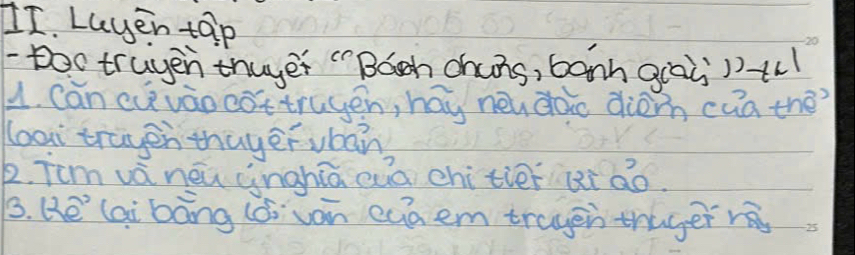 II. Luyện tập
- Đọc truyền thuyết "Bánh chưng, bánh giầy" - tl
1. Căn cứ vào cốt truyện, hãy nêu đặc điểm của thể
loại truyền thuyết vbản
2. Tìm và nêu ý nghĩa của chi tiết kì ảo.
3. Kể lại bằng lời văn của em truyền thuyết này